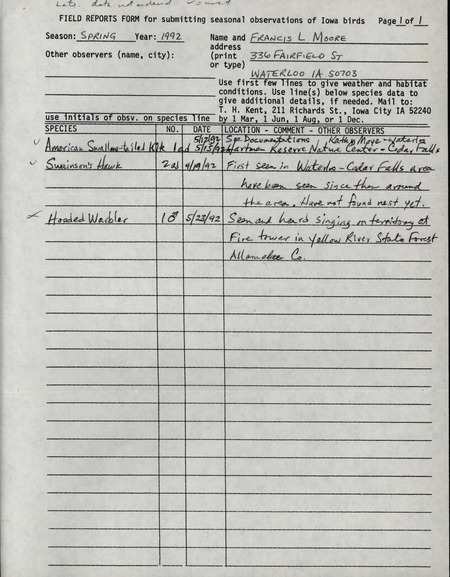 Late. date not entered
FIELD REPORTS FORM for submitting seasonal observations of Iowa birds Page 1 of 1
Season: SPRING Year: 1992 Name and FRANCIS L MOORE
address
Other observers (name, city): (print 336 FAIRFIELD ST
or type)
WATERLOO IA 50703
Use first few lines to give weather and habitat
conditions. Use line(s) below species data to
give additional details, if needed. Mail to:
T. H. Kent, 211 Richards St., Iowa City IA 52240
use initials of obsv. on species line by 1 Mar, 1 Jun, 1 Aug, or 1 Dec.
SPECIES NO. DATE LOCATION - COMMENT - OTHER OBSERVERS
5/17/92 See Documentations Kathy Moye - Waterloo
American Swallow-tailed Kite 1 ad 5/15/92 Hartman Reserve Nature Center - Cedar Falls
Swainson's Hawk 2 ad 4/19/92 First seen in Waterloo - Cedar Falls area
have been seen since then around
the area. Have not found nest yet.
Hooded Warbler 1♂ 5/23/92 Seen and heard singing on territory at
Fire tower in Yellow River State Forest
Allamakee Co.